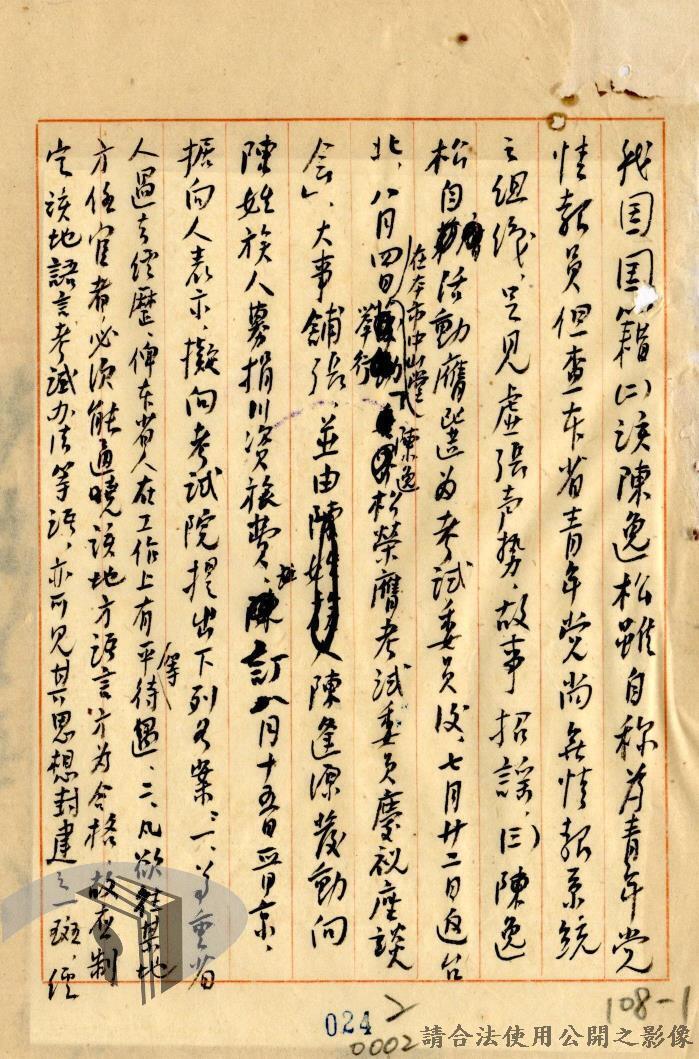 我国国籍(二)该陳逸松雖自称为青年党
情報員但查本省青年党尚無情報系統
之组織、足見虚張声势、故事招謡、(三)陳逸
松自活動膺選为考試委員後、七月廿二日返台
北、八月四日在本市中山堂举行陳逸松榮膺考試委員慶祝座談
会」、大事舖張、並由陳逢源發動向
陳姓族人募捐川資旅費、訂八月十五日晋京、
据向人表示、擬向考試院提出下列各案、一、尊重省
人過去经歷、俾本省人在工作上有平等待遇、二、凡欲某地
方任官者、必須能通曉該地方語言方为合格、故应制
定該地語言考試办法等語、亦可見其思想封建之一斑、经
108-1
024
2
0002
請合法使用公開之影像